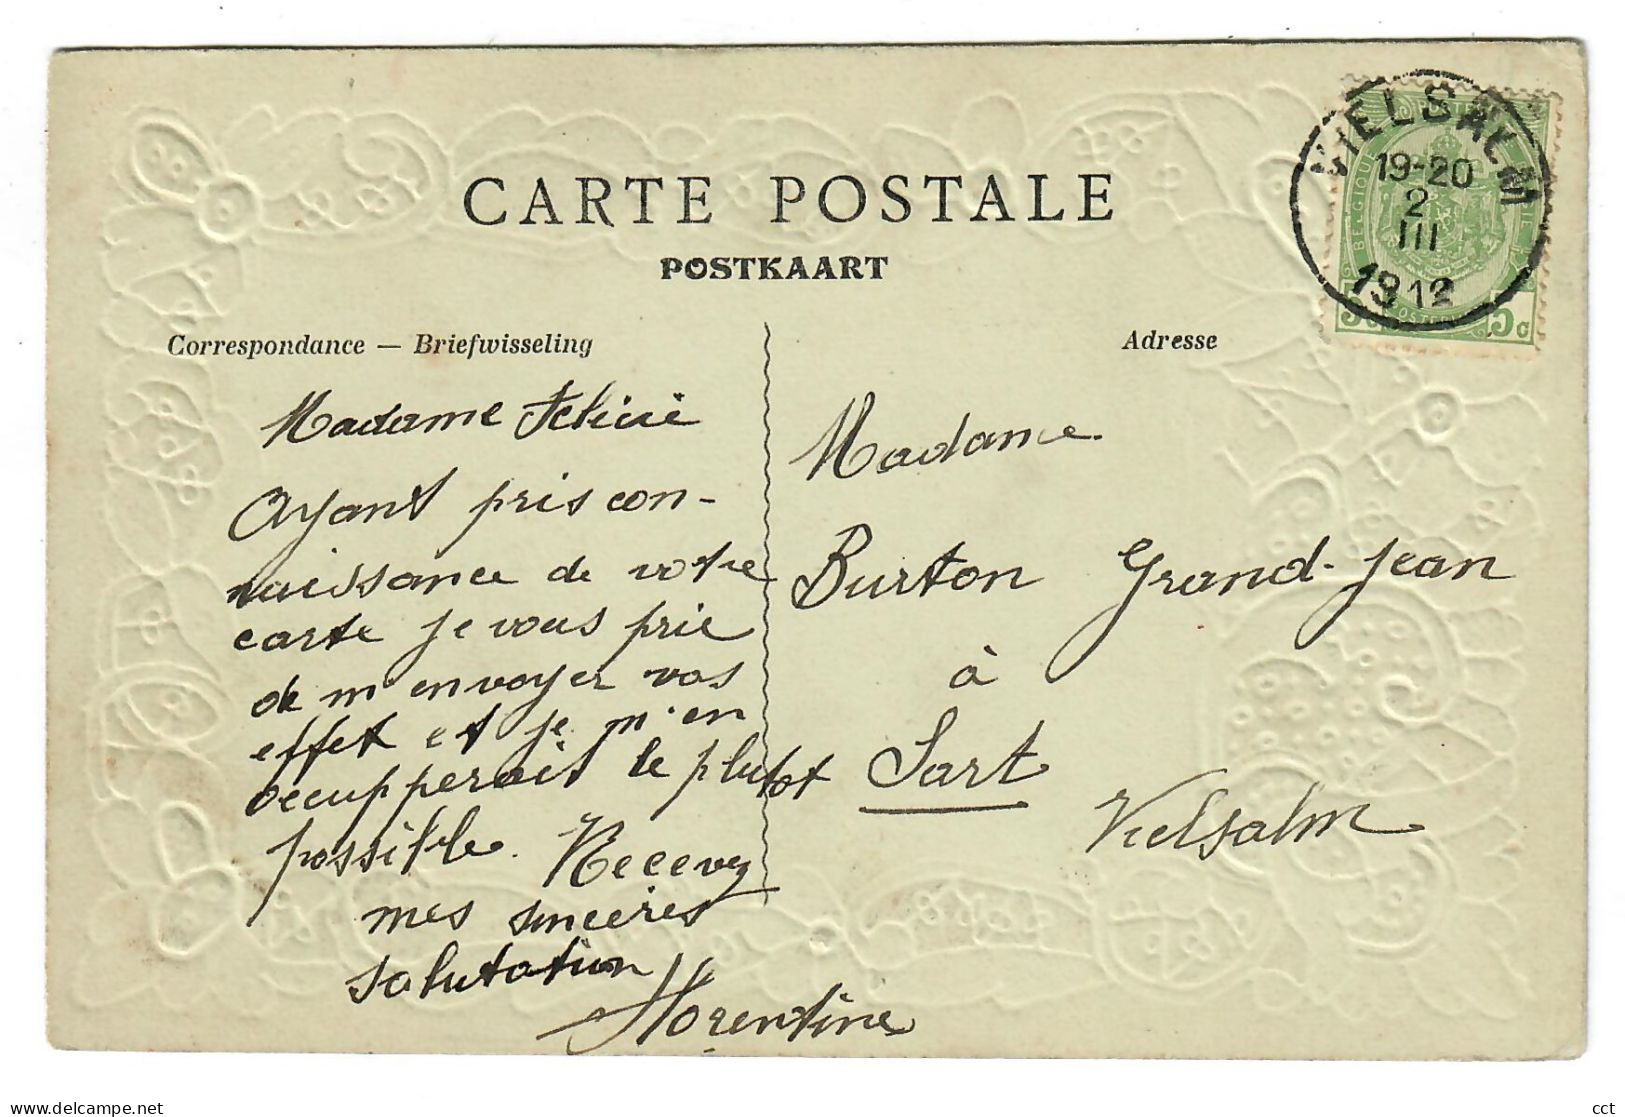 CARTE POSTALE
POSTKAART
Correspondance — Briefwisseling
Adresse
VIELSALM
19-20
2
III
1912
BELGIQUE
5c
Madame Félicie
Ayant pris con-
naissance de votre
carte je vous prie
de m'envoyer vos
effet et je m'en
occupperait le plutot
possible. Recevez
mes sincères
salutation
Florentine
Madame
Burton Grand-Jean
à
Sart
Vielsalm
delcampe.net
cct